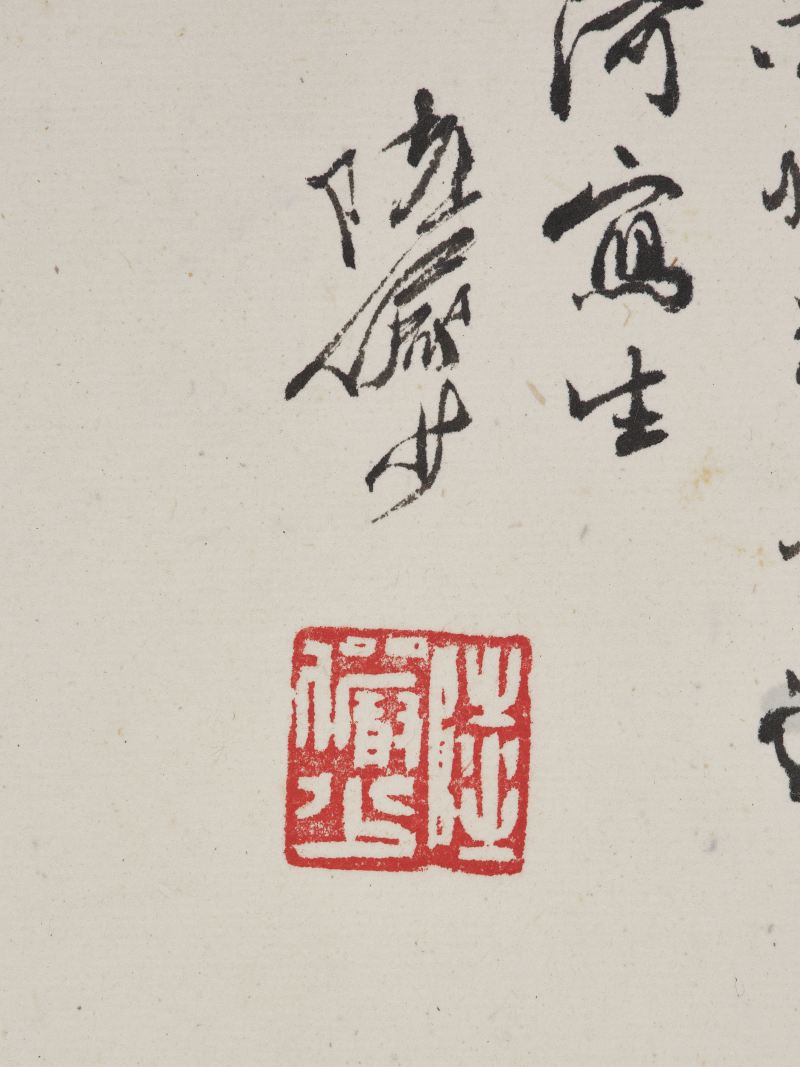 河寫生
陸儼少
陸儼少